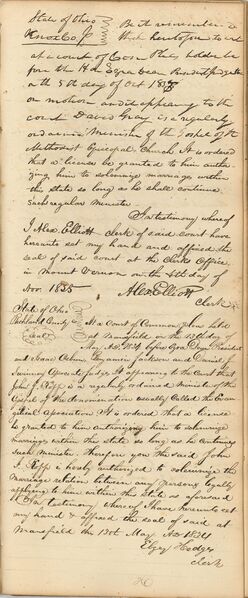 State of Ohio } Be it remembered
Knox Co. } that heretofore to wit
at a court of Com. Pleas holden be
fore the Hon Ezra Dean President Judge &c
on the 5th day of Oct 1835
on motion and it appearing to the
court David Gray is a regularly
ordained Minister of the Gospel of the
Methodist Episcopal Church It is ordered
that a license be granted to him autho
rizing him to solemnize marriages within
the state so long as he shall continue
such regular minister
In testimony whereof
I Alex Elliott clerk of said court have
hereunto set my hand and affixed the
seal of said court at the Clerks Office
in Mount Vernon on the 4th day of
Nov. 1835 Alex Elliott
Clerk
State of Ohio
Richland County
Seal
At a Court of Common Pleas held
at Mansfield on the 13th day of
May AD 1834 before Ezra Dean President
and Isaac Osbun Benjamin Jackson and Daniel
Associate judges It appearing to the Court that
John J. Kopp is a regularly ordained Minister of the
Gospel of the denomination usually Called the Evan
gelical Association It is ordered that a license
be granted to him authorizing him to solemnize
marriages within the state so long as he continues
such Minister. Therefore you the said John
J. Kopp is hereby authorized to solemnize the
marriage relation between any persons legally
applying to him within this state as aforesaid
In testimony whereof I have hereunto set
my hand & affixed the seal of said at
Mansfield the 13th May AD 1834
Hedges
clerk